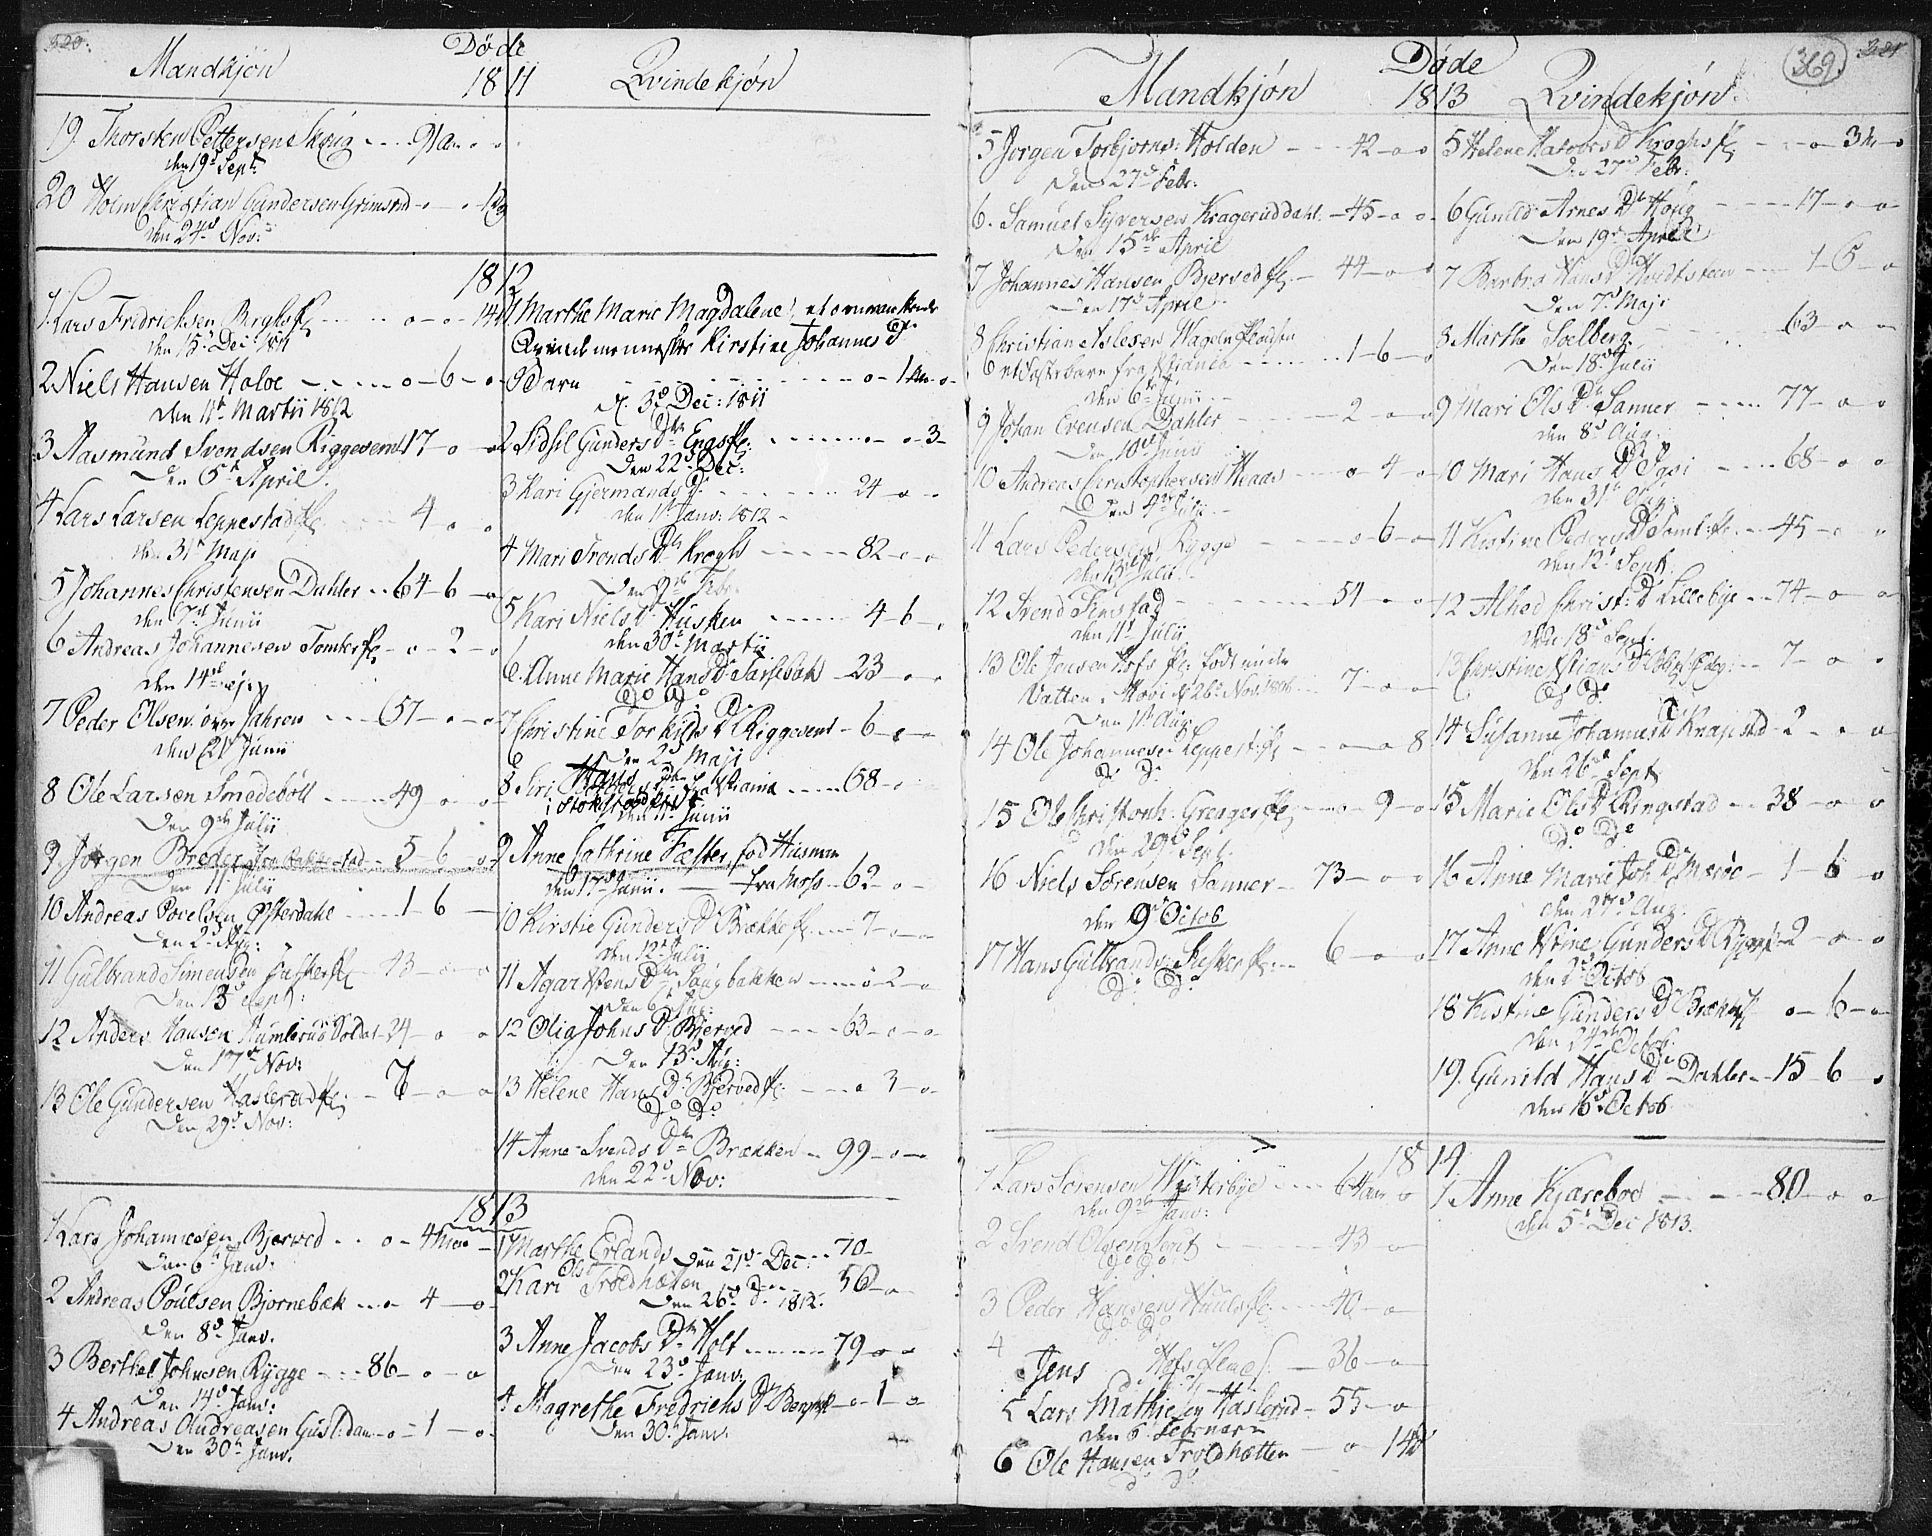 320.
Døde
Mandkjøn 1811 Qvindekjøn
19. Thorsten Pettersen Skoug --- 9 - o - o
den 19d Sept:
20 Holm Christian Gundersen Grimsrud - o - o -
den 24d Nov:
1812
1 Lars Fredrichsen Berghs fl: --- o - o - 14
den 15d Dec: 1811
2 Niels Hansen Holoe --- o - 6 - o
den 11t Martii 1812
3 Aasmund Svendsen Riggesund 17 - o - o
Den 5t April.
4 Lars Larsen Leppestad fl: --- 4 - o - o
den 31t Maji
5 Johannes Christensen Dahler -- 64 - 6 - o
den Junii
6 Andreas Johannesen Tomter fl: - o - 2 - o
den 14de ejusd
7 Peder Olsen Jahren --- 57 - o - o
den 21t Junii
8 Ole Larsen Smedebøll --- 49 - o - o
Den 9de Julii
9. Jørgen Breder --- 5 - 6 - o
Den 11t Julii
10 Andreas Povelsen Østerdahl --- 1 - 6 -
Den 2d Aug:
11 Gulbrand Simensen fl: - 43 - o - o
Den 13d Sept:
12 Anders Hansen Humlerud Soldat - 24 - o - o
Den 17d Nov:
13 Ole Gundersen Haslerud fl: - 7 - o - o
Den 29d Nov:
1 Marthe Marie Magdalene, et omvankende
Qvindemenneske Kirstine Johannes D
Barn --- o - 1 - o
d. 3d Dec: 1811
2 Sidsil Gunders D Engs fl: --- o - o - 3 -
Den 22d Dec:
3 Kari Gjermands D --- 24 - o - o
den 1t Janv: 1812 -
4 Mari Tronds D Krogh --- 82 - o - o
Den 9de Febr:
5 Kari Niels D Husken --- 4 - 6 - o
den 30t Martii
6. Anne Marie Hans D Sarslebak - 23 - o - o
do do
7 Christine Torkilds D Riggesund - 6 - o - o
Den 2d Maji
8 Siri --- 58 - o
Junii
9 Anne Cathrine Fæster, fød Husman
den 17d Junii. — fra Moss - 62 - o -
10 Kirstie Gunders D Brække fl: --- 7 - o - o
den 12t Julii
11 Agar D Haugbakken --- o - 2 - o
Den 6t Aug:
12 Olia Johns D Bjerved --- 63 - o - o
Den 13d Aug:
13 Helene Hans D Bjerved fl: --- o - 3 - o
do do
14 Anne Svends D Brækken - 99 - o - o
den 22d Nov:
1813
1 Lars Johannesen Bjerved -- o - 4
Den 6t Janv:
2 Andreas Poulsen Bjørnebæk --- 4 - o -
den 8d Janv.
3 Berthel Johnsen Rygge --- 86 - o - o
Den 14d Janv:
4 Andreas Andreasen - o - 1 - o
Den 30t Janv.
1 Marthe Erlands den 21d Dec: -- 70 -
2 Kari Ols Troldhætten --- 56 - o -
Den 26d d 1812.
3 Anne Jacobs D Holt --- 79 - o - o
Den 23d Janv:
4 Magrethe Fredrichs D Bergh fl - o - 1 - o
Den 30t Janv.
369. 321
Døde
Mandkjøn 1813 Qvindekjøn.
5 Jørgen Torbjørns: Holden --- 42 - o - o
Den 27d Febr:
6. Samuel Syversen Krageruddahl. - 45 - o - o
Den 15de April
7 Johannes Hansen Bjerved fl: - 44 - o - o
Den 17d April
8 Christian Aslesen
et Fosterbarn fra Xstiania --- 1 - 6 - o
den 6t Junii -
9 Johan Evensen Dahler --- 2 - o - o
Den 10d Junii
10 Andreas Christophersen Haas --- o - 4 - o
Den 4d Julii
11 Lars Pedersen Rygge --- o - 6 - o
den 13d Julii
12 Svend Finstad --- 51 - o - o
den 11t Julii
13 Ole Jensen Hofs fl: født under
Vatten: Hovi d 26d Nov: 1806 --- 7 - o - o
Den 1t Aug
14 Ole Johannesen Leppest: fl: --- o - o 8
do do
15 Ole Christoph: Grenger fl: --- o - 9 - o
den 29d Sept:
16 Niels Sørensen Sanner - 73 - o - o
den 9d Octob
17 Hans Gulbrands: fl: -- 6 - o - o
do do
5 Helene Halvors D Kroghs fl: --- o 3 - o
D: 27d Febr:
6 Gunild Arnes D Houg --- 17 - o - o
Den 19d April
7 Barbra Hans D Hvidtsteen --- 1 - 6 - o
Den 7d Maji
8 Marthe Solberg --- 63 - o - o
Den 18d Julii
9 Mari Ols D Sanner --- 77 - o - o
den 8d Aug
10 Mari Hans D --- 68 - o - o
den 31t Aug:
11 Kistine Peders D Tomt: fl: -- 45 - o - o
den 12d Sept:
12 Alhed Christ: D Lillebye -- 74 - o - o
den 18d Sept:
13 Christine D -- 7 - o - o
do do
14 Susanne Johannes D Knapstad - 2 - o - o
den 26d Sept
15 Marie Ols D Ringstad -- 38 - o - o
do do
16 Anne Marie Joh D - 1 - 6 - o
den 27d Aug:
17 Anne Gunders D Rygge - 2 - o - o
den Octob
18 Kistine Gunders D Brække fl o - 6 - o
den 24de Octob.
19. Gunild Hans D Dahler - 15 - 6 - o
den 16d Octob
1814.
1 Lars Sørensen Westerbye --- 6 o
den 9de Janv:
2 Svend Olsen --- 43 - o
do do
3 Peder Hansen fl: --- 40 - o
do do
4
Jens Hofs - 36 - o
5 Lars Mathiesen Haslerud - 55 - o
den 6t Februar
6 Ole Hansen Troldhætten - o - 14
do do
1 Anne Kjæreboe --- 80 - o - o
den 5t Dec 1813.